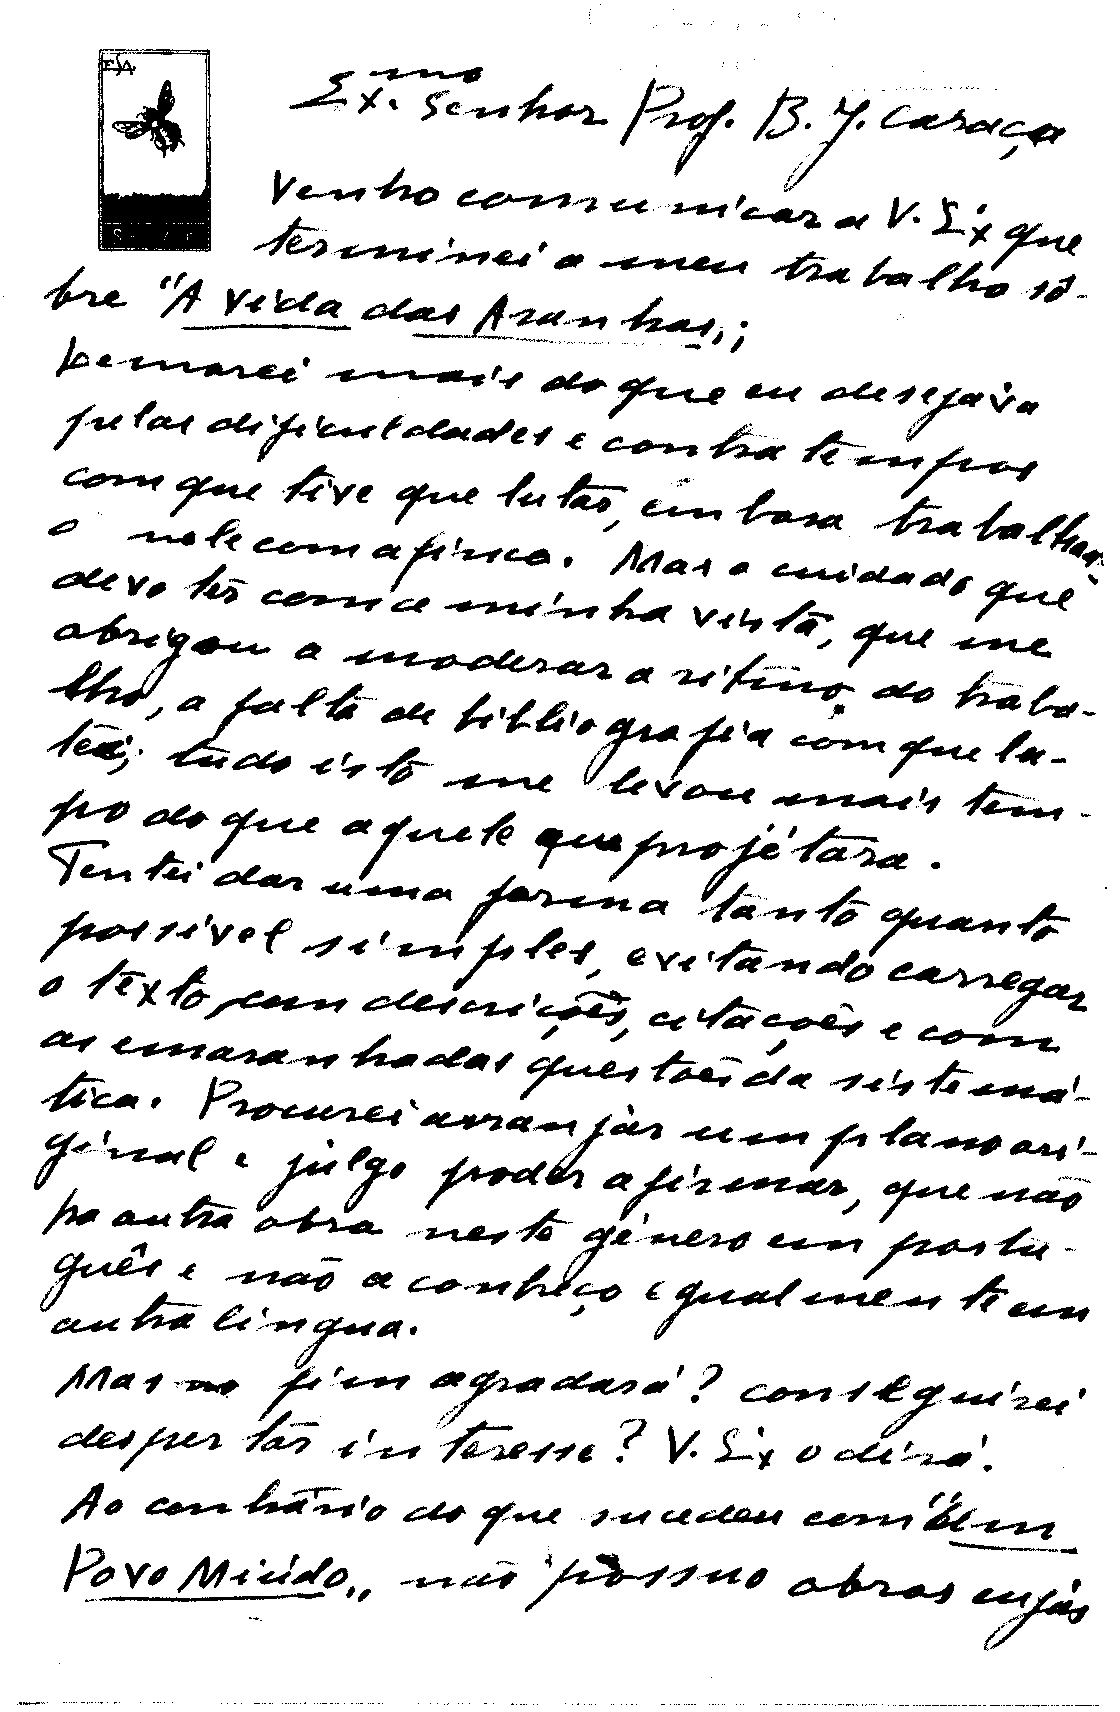 Ex.mo Senhor Prof. B. J. Caraça
Venho comunicar a V. Ex que
terminei o meu trabalho sô-
bre "A vida das Aranhas";
Demorei mais do que eu desejava
pelas dificuldades e contratempos
com que tive que lutar, embora trabalhan-
o nele com afinco. Mas o cuidado que
devo ter com a minha vista, que me
obrigou a moderar o ritmo do traba-
lho, a falta de bibliografia com que lu-
tei; tudo isto me levou mais tem-
po do que aquele que projétara.
Tentei dar uma forma tanto quanto
possivel simples, evitando carregar
o texto com descrições, citações e com
as emaranhadas questões da sistemá-
tica. Procurei arranjar um plano ori-
ginal e julgo poder afirmar, que não
ha outra obra neste género em portu-
guês e não a conheço igualmente em
outra lingua.
Mas no fim agradará? conseguirei
despertar interesse? V. Ex o dirá.
Ao contrário do que sucedeu com "Um
Povo Miúdo", não possuo obras cujas